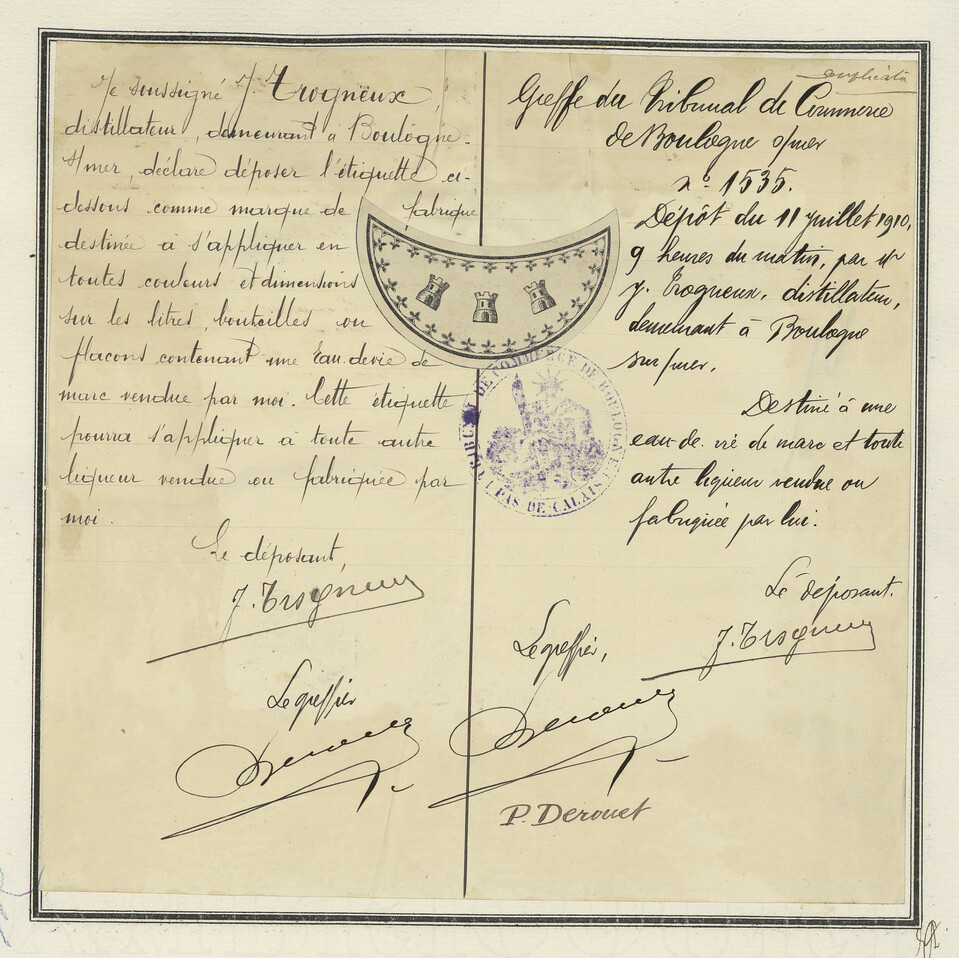 Je soussigné J. Trogneux,
distillateur, demeurant à Boulogne-
s/mer, déclare déposer l'étiquette ci-
dessous comme marque de fabrique
destinée à s'appliquer en
toutes couleurs et dimensions
sur les litres, bouteilles ou
flacons contenant une Eau de vie de
marc vendue par moi. Cette étiquette
pourra s'appliquer à toute autre
liqueur vendue ou fabriquée par
moi.
Le déposant,
J. Trogneux
Le greffier
Derouet
duplicata
Greffe du Tribunal de Commerce
de Boulogne s/mer
nº 1535.
Dépôt du 11 juillet 1910,
9 heures du matin, par Mr
J. Trogneux, distillateur,
demeurant à Boulogne
sur/mer.
Destiné à une
eau-de-vie de marc et toute
autre liqueur vendue ou
fabriquée par lui.
Le déposant.
J. Trogneux
Le greffier,
Derouet
P. Derouet
TRIBUNAL DE COMMERCE DE BOULOGNE
PAS-DE-CALAIS